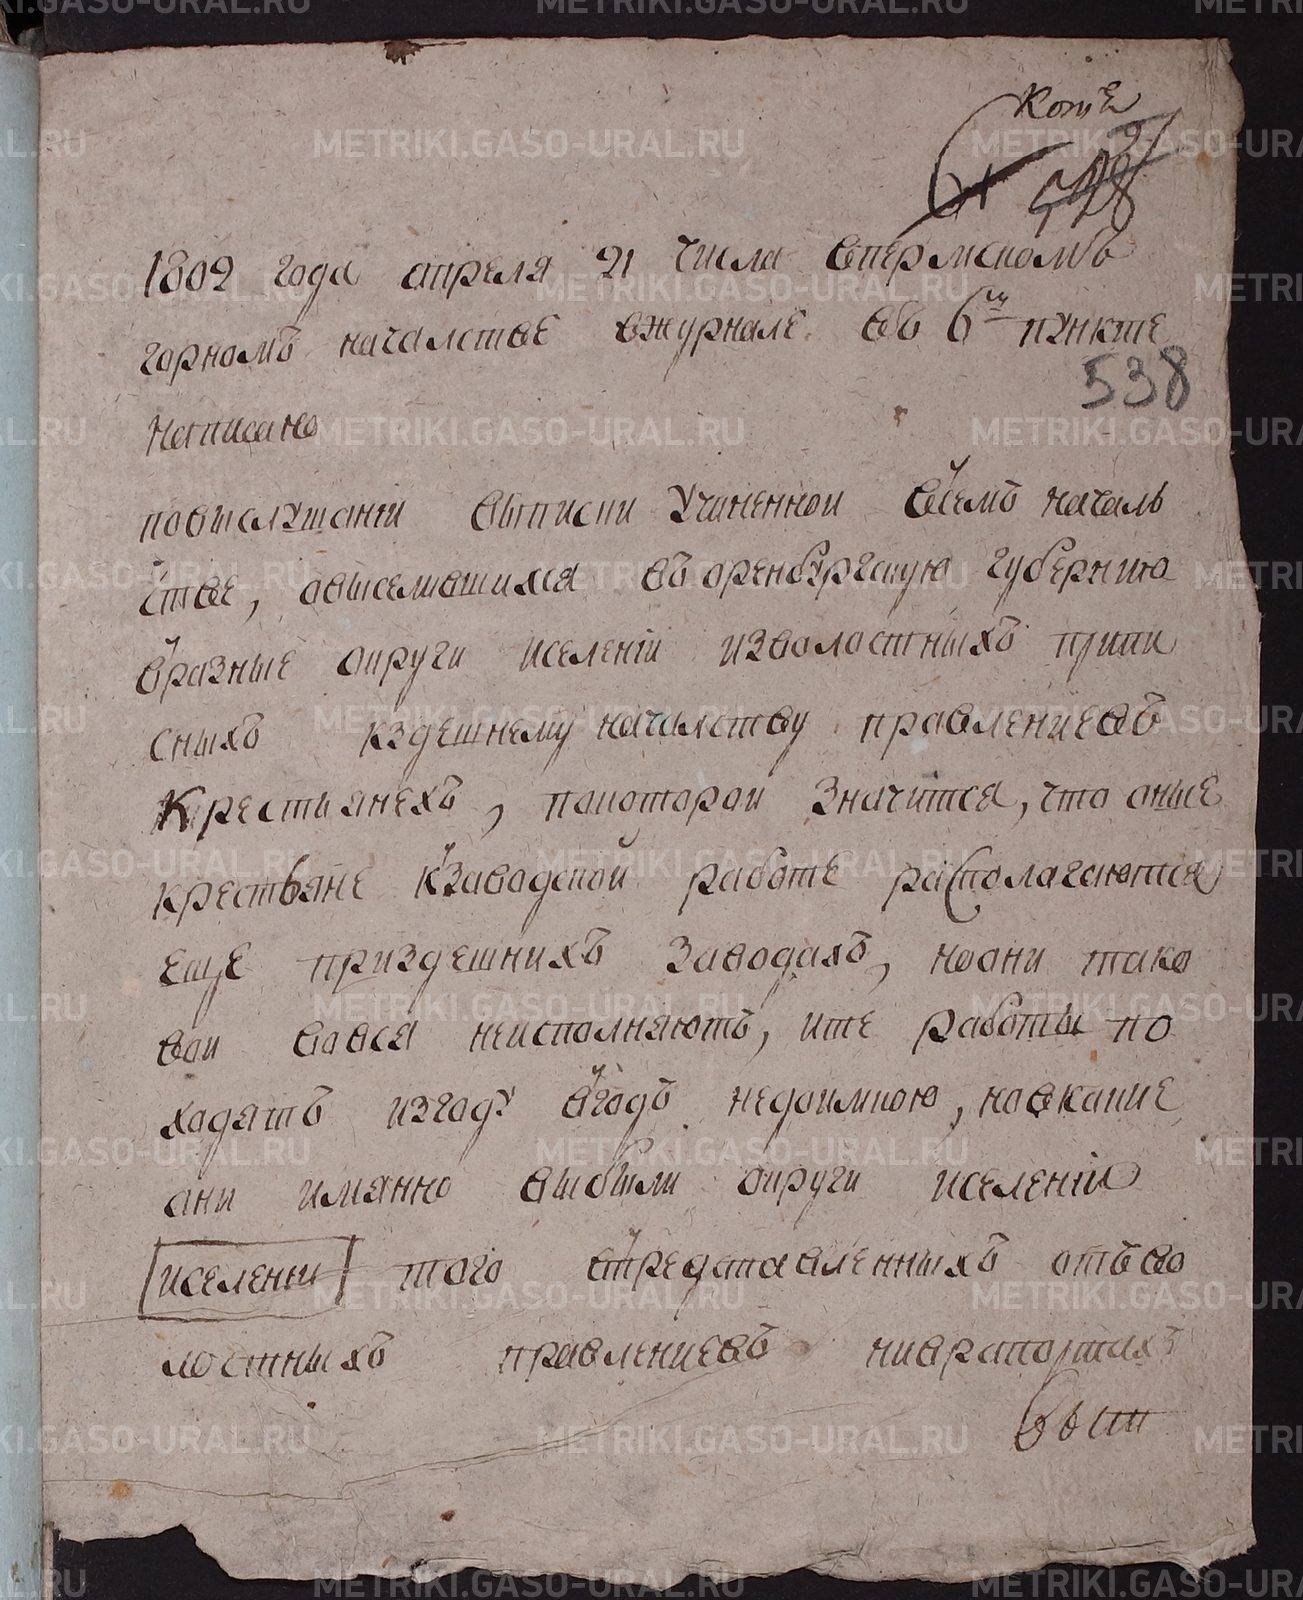 Копiѣ
538
1802 года апреля 21 числа впермскомъ
горномъ началстве вжурнале въ 6м пункте
538
написано
повыслушанiи выписки учиненной всемъ началь
стве, овыселившихся въ оренбургскую губернию
вразные округи иселенiи изволостныхъ припи
сныхъ кздешнему началству правлениевъ
Крестьянехъ, покоторой значится, что оные
крестьяне кзаводской работе располагаются
еще приздешнихъ заводахъ, ноони тако
вой вовся неисполняютъ, ите работы по
ходятъ изгоду вгодъ недоимкою, новкакие
они имянно выбыли округи иселенiи
иселении того впредставленныхъ отъво
лостныхъ правлениевъ ниврапортахъ
METRIKI.GASO-URAL.RU